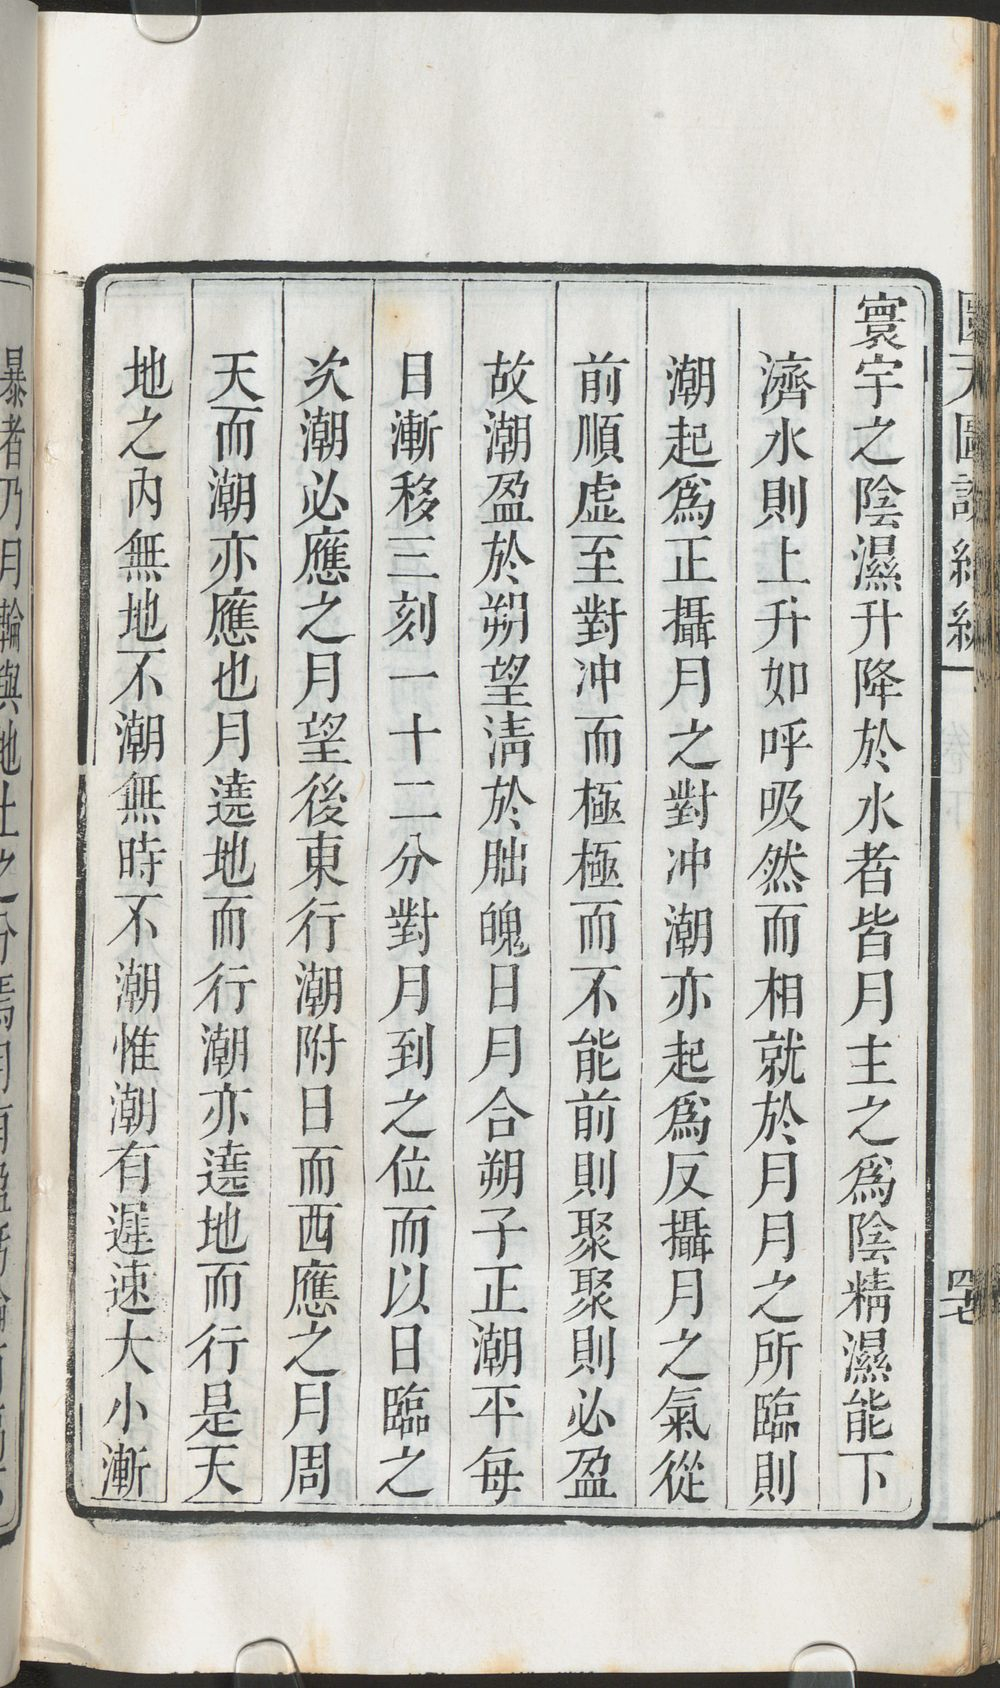 寰宇之陰濕升降於水者皆月主之爲陰精濕能下
濟水則上升如呼吸然而相就於月月之所臨則
潮起爲正攝月之對冲潮亦起爲反攝月之氣從
前順虛至對冲而極極而不能前則聚聚則必盈
故潮盈於朔望淸於朏魄日月合朔子正潮平每
日漸移三刻一十二分對月到之位而以日臨之
次潮必應之月望後東行潮附日而西應之月周
天而潮亦應也月遶地而行潮亦遶地而行是天
地之內無地不潮無時不潮惟潮有遲速大小漸
暴者乃月輪與地土之分焉
四七